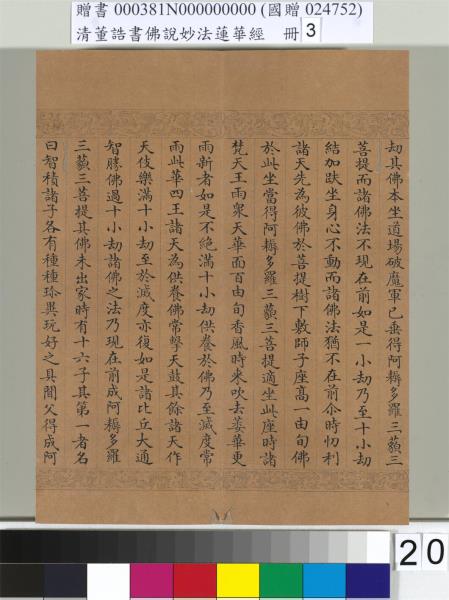 贈書 000381N000000000 (國贈 024752)
清董誥書佛說妙法蓮華經 冊 3
劫其佛本坐道場破魔軍已垂得阿耨多羅三藐三
菩提而諸佛法不現在前如是一小劫乃至十小劫
結加趺坐身心不動而諸佛法猶不在前尒時忉利
諸天先為彼佛於菩提樹下敷師子座高一由旬佛
於此坐當得阿耨多羅三藐三菩提適坐此座時諸
梵天王雨眾天華面百由旬香風時來吹去萎華更
雨新者如是不絕滿十小劫供養於佛乃至滅度常
雨此華四王諸天為供養佛常擊天鼓其餘諸天作
天伎樂滿十小劫至於滅度亦復如是諸比丘大通
智勝佛過十小劫諸佛之法乃現在前成阿耨多羅
三藐三菩提其佛未出家時有十六子其第一者名
曰智積諸子各有種種珍異玩好之具聞父得成阿
20